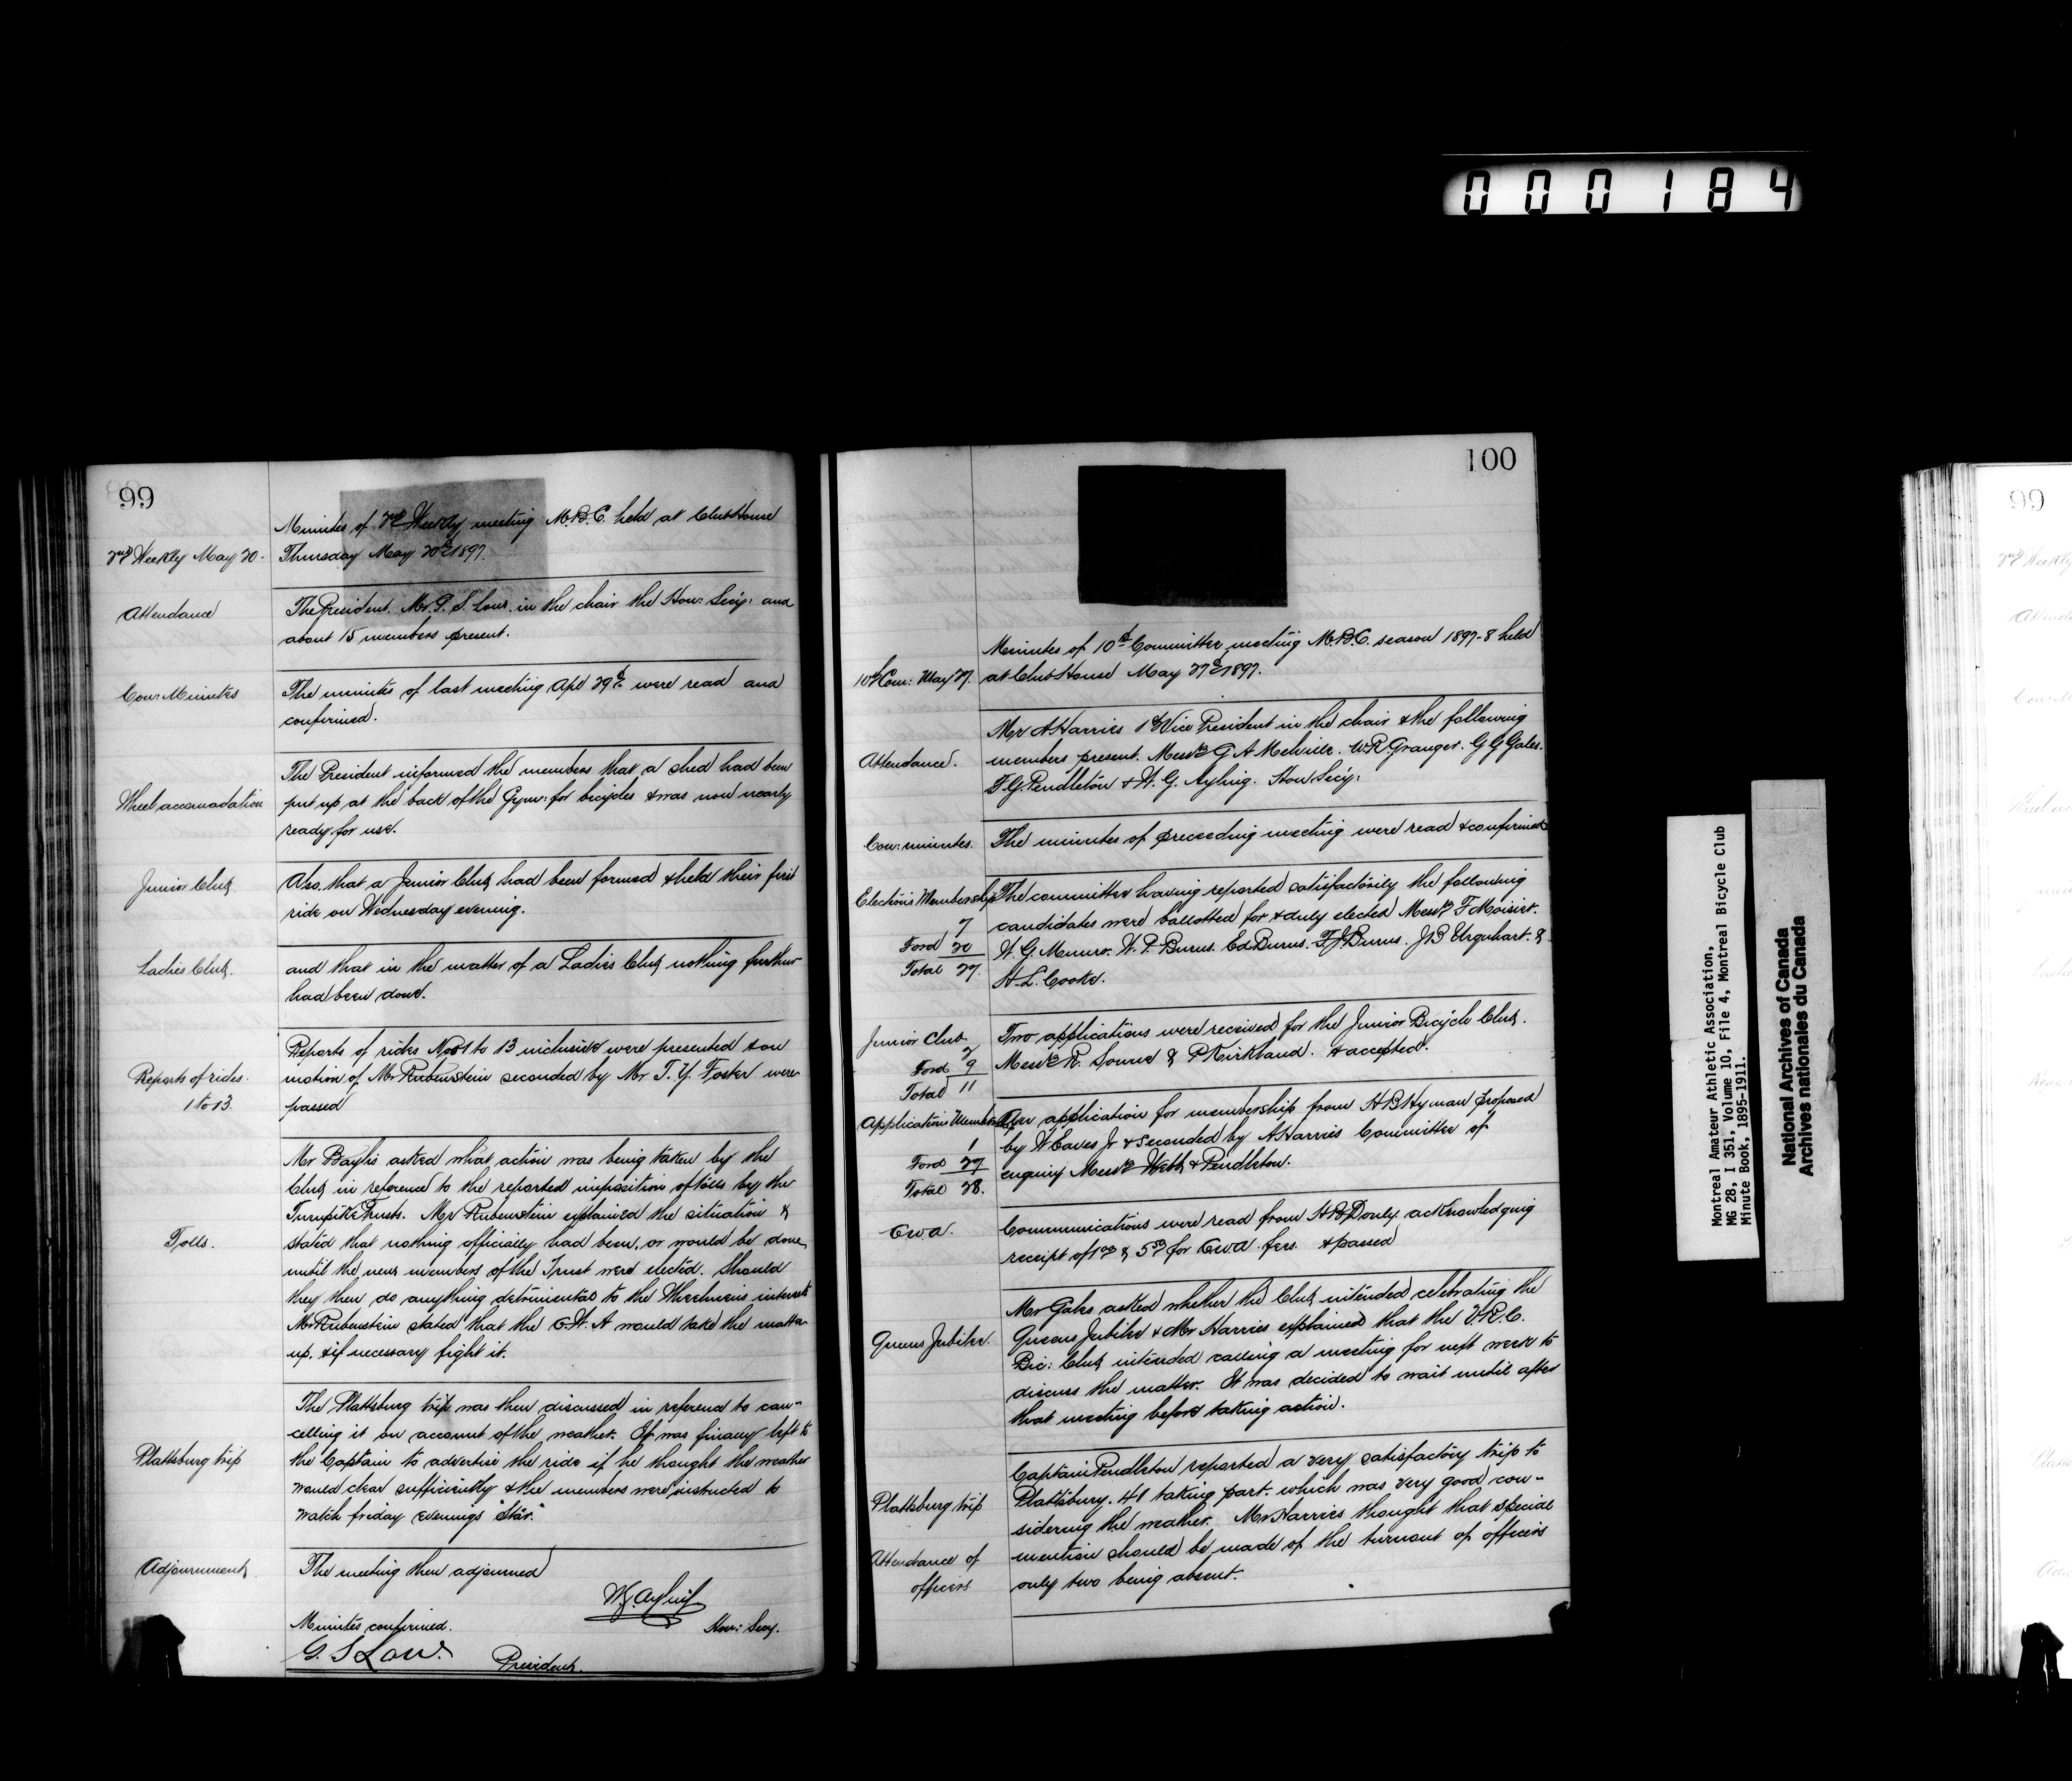 000184
99
Minutes of 2nd Weekly meeting M.B.C. held at Club House
2nd Weekly May 20. Thursday May 20th 1897.
Attendance
The President. Mr. G. S. Low. in the chair the Hon: Secy: and
about 15 members present.
Con: Minutes
The minutes of last meeting Apl 29th were read and
confirmed.
The President informed the members that a shed had been
Wheel accomadation put up at the back of the Gym: for bicycles & was now nearly
ready for use.
Junior Club.
Also, that a Junior Club had been formed & held their first
ride on Wednesday evening.
Ladies Club.
and that in the matter of a Ladies Club nothing further
had been done.
Reports of rides Nos 1 to 13 inclusive were presented & on
Reports of rides. motion of Mr Rubenstein seconded by Mr T. Y. Foster were
1 to 13. passed
Mr Baylis asked what action was being taken by the
Club in reference to the reported imposition of tolls by the
Turnpike Trusts. Mr Rubenstein explained the situation &
Tolls. stated that nothing officially had been, or would be done,
until the new members of the Trust were elected. Should
they then do anything detrimental to the Wheelmens interests
Mr Rubenstein stated that the C.W.A would take the matter
up, & if necessary fight it.
The Plattsburg trip was then discussed in reference to can-
celling it on account of the weather. It was finally left to
Plattsburg trip the Captain to advertise the ride if he thought the weather
would clear sufficiently & the members were instructed to
watch friday evenings "Star."
Adjournment. The meeting then adjourned
W.G. Ayling
Hon: Secy.
Minutes confirmed.
G. S Low. President.
100
Minutes of 10th Committee meeting M.B.C. season 1897-8 held
10th Com: May 27. at Club House May 27th 1897.
Mr A Harries 1st Vice President in the chair & the following
Attendance. members present. Messrs G A Melville. W.R. Granger. G G Gales.
F.G. Pendleton & W. G. Ayling. Hon: Secy:
Con: minutes. The minutes of preceeding meeting were read & confirmed
Elections Membership The committee having reported satisfactorily the following
7 candidates were ballotted for & duly elected Messrs F Moisist.
Ford 20 W. G. Munro. W. P. Burns. Ed Burns. F J Burns. J B Urquhart. &
Total 27. H. L. Cooke.
Junior Club Two applications were received for the Junior Bicycle Club.
2
Ford 9 Messrs R. & P Kirkland. & accepted.
Total 11
Applications Membership An application for membership from H B Hyman proposed
1 by W Eaves Jr & seconded by A Harries Committee of
Ford 27 enquiry Messrs Webb & Pendleton.
Total 28.
C.W.A. Communications were read from H B Donly acknowledging
receipt of 1.00 & 5.50 for C.W.A. fees. & passed
Mr Gales asked whether the Club intended celebrating the
Queens Jubilee. Queens Jubilee & Mr Harries explained that the V.R.C.
Bic: Club intended calling a meeting for next week to
discuss the matter. It was decided to wait until after
that meeting before taking action.
Captain Pendleton reported a very satisfactory trip to
Plattsburg trip Plattsburg. 41 taking part. which was very good con-
sidering the weather. Mr Harries thought that special
Attendance of mention should be made of the turnout of officers
officers only two being absent.
Montreal Amateur Athletic Association,
MG 28, I 351, Volume 10, File 4, Montreal Bicycle Club
Minute Book, 1895-1911.
National Archives of Canada
Archives nationales du Canada
99
2nd Weekly